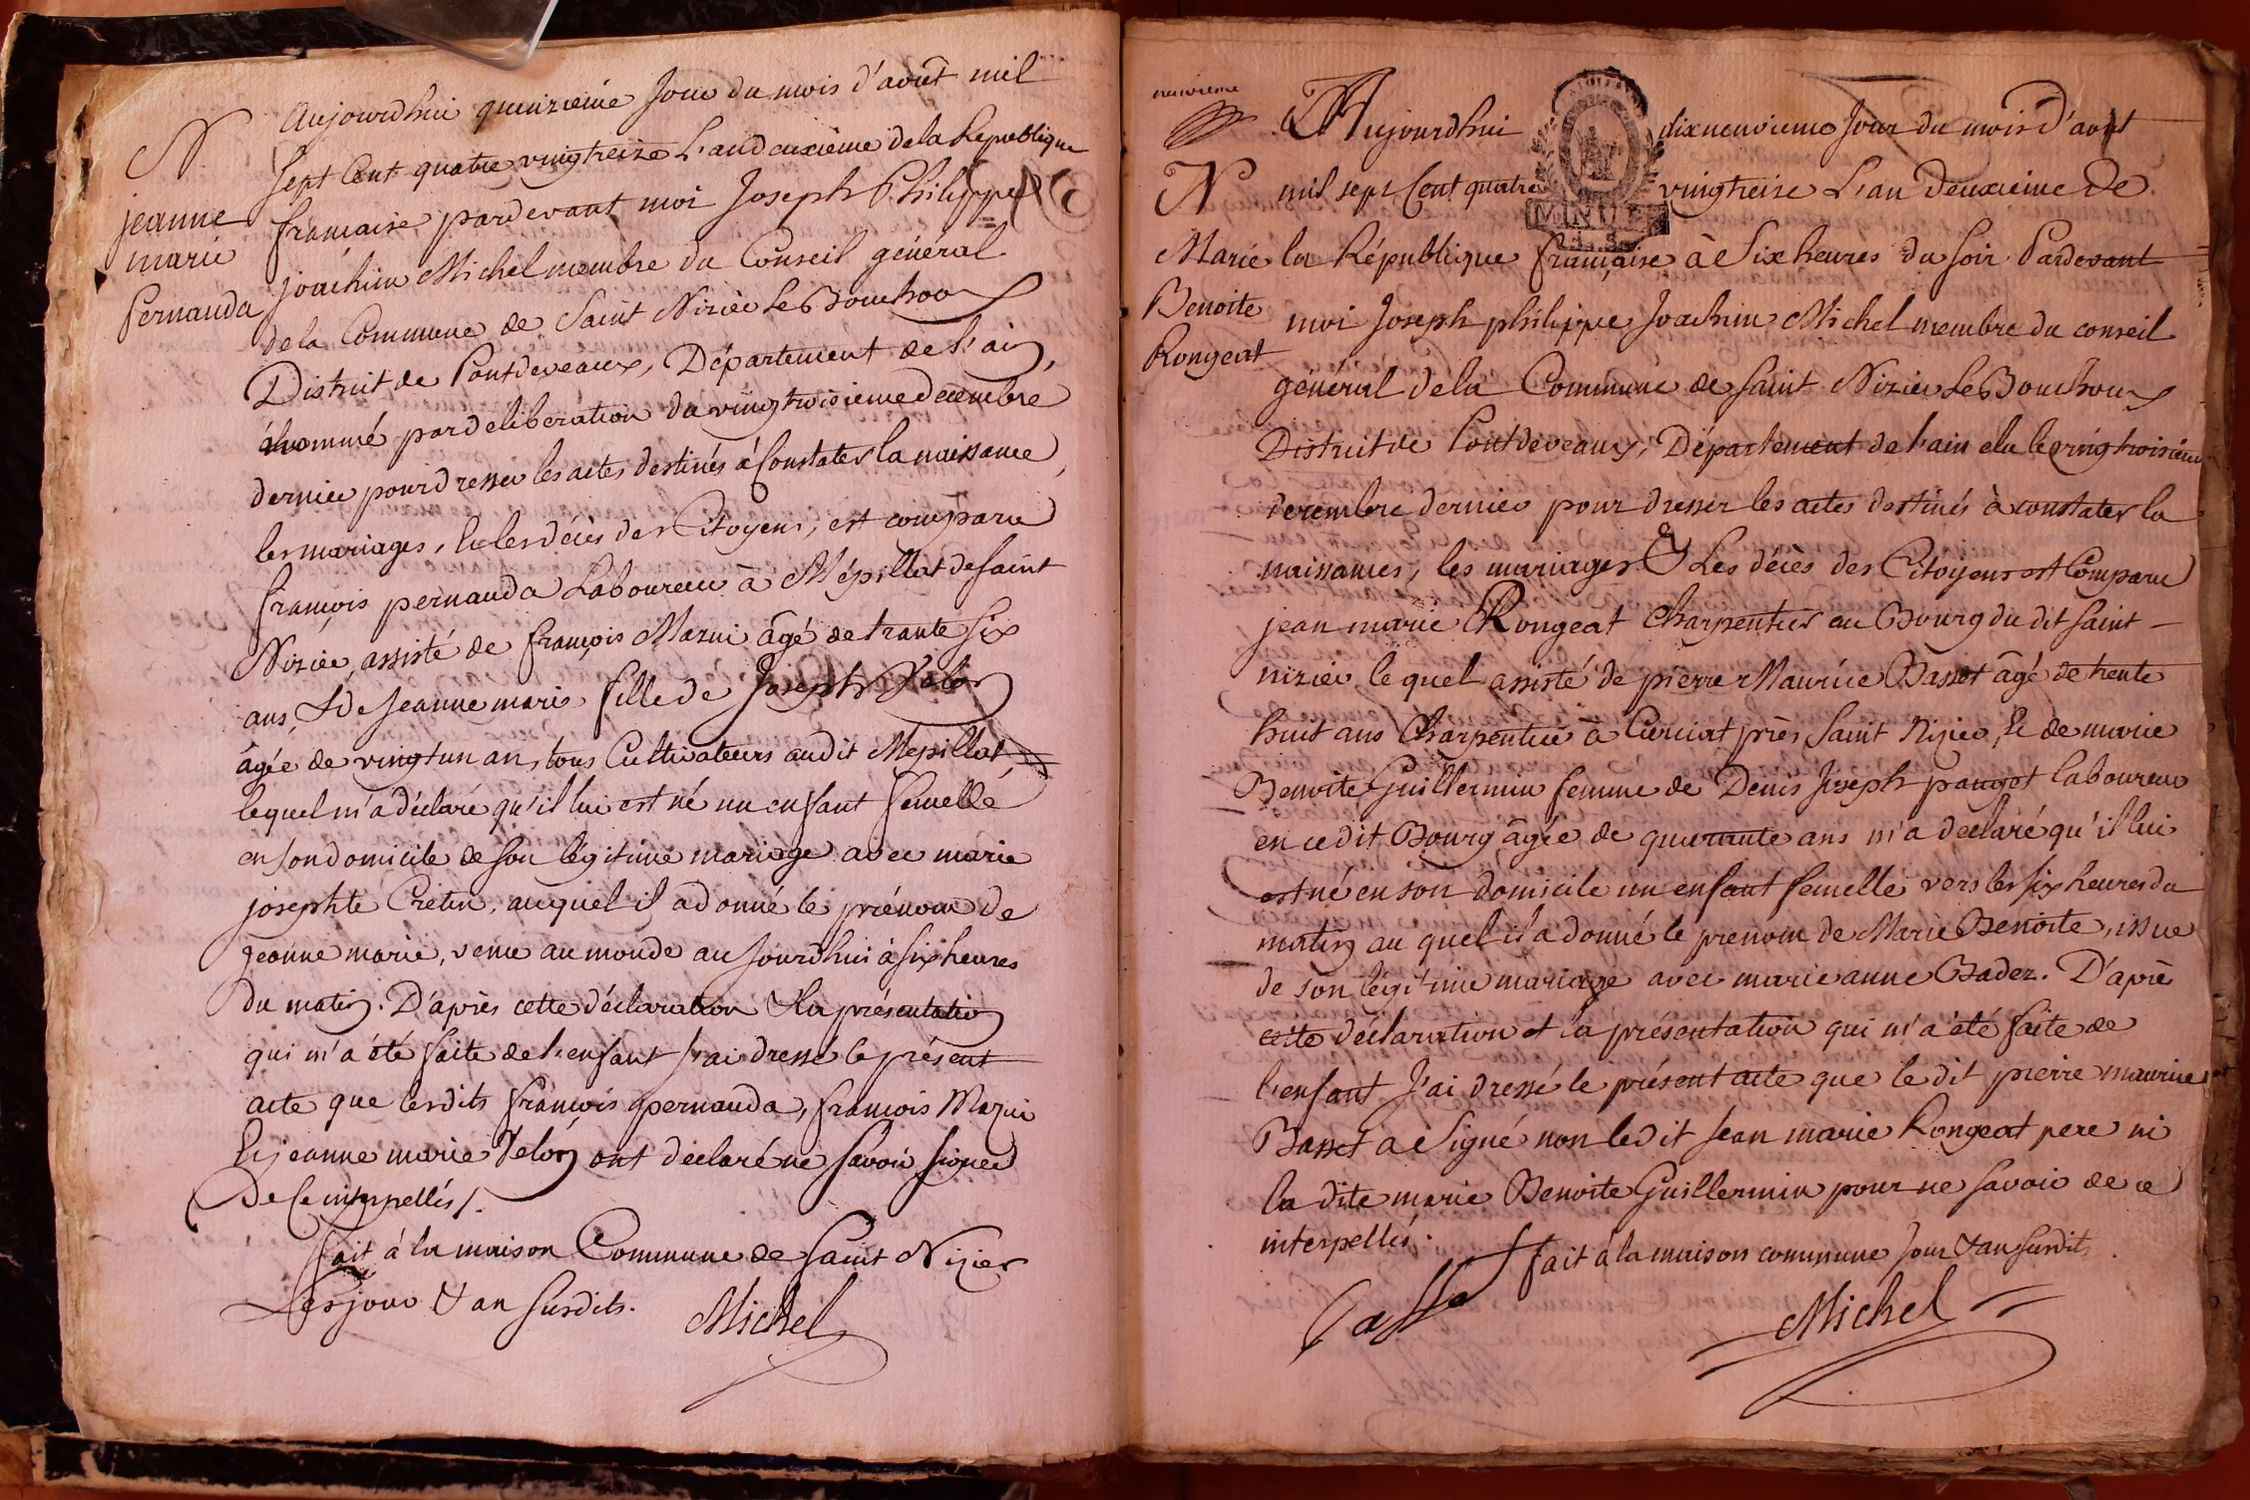 N
jeanne
marie
Pernauda
Aujourdhui quinzieme Jour du mois d'août mil
sept Cent quatre vingt treize L'an deuxième de la République
française pardevant moi Joseph Philippe
joachim Michel membre du Conseil général
de la Commune de Saint Nizier le Bouchoux
District de Pontdeveaux, Département de l'ain,
nommé par deliberation du vingt troisieme decembre
dernier pour dresser les actes destinés à Constater la naissance,
les mariages, & les décès des Citoyens, est comparu
françois pernauda Laboureur à Mépillat de saint
Nizier, assisté de françois Mazui âgé de trante six
ans, & de Jeanne marie fille de Joseph Velon
âgée de vingt un an, tous Cultivateurs au dit Mepillat,
lequel m'a déclaré qu'il lui est né un enfant femelle
en son domicile de son légitime mariage avec marie
josephte Cretin, auquel il a donné le prénom de
Jeanne marie, venu au monde aujourdhui à six heures
du matin. D'après cette déclaration & la présentation
qui m'a été faite de l'enfant j'ai dressé le présent
acte que lesdits françois pernauda, françois Mazui
& jeanne marie Velon ont déclaré ne savoir signer
De ce interpellés/.
fait à la maison Commune de Saint Nizier
Les jour & an susdits.
Michel
neuvieme
N
Marie
Benoite
Rongeat
Aujourdhui dixneuvieme Jour du mois d'aout
mil sept Cent quatre vingt treize L'an deuxieme de
la République française à Six heures du soir Pardevant
moi Joseph philippe Joachim Michel membre du conseil
général de la Commune de Saint Nizier Le Bouchoux
District de Pontdeveaux, Département de l'ain elu le vingt troisième
decembre dernier pour dresser les actes destinés à constater la
naissances, les mariages & Les décès des Citoyens est Comparu
jean marie Rongeat Charpentier au Bourg du dit saint
nizier le quel assisté de pierre Maurice Basset âgé de trente
huit ans Charpentier à Curciat près Saint Nizier, & de marie
Benoite Guillermin femme de Denis Joseph pauget laboureur
en cedit Bourg âgée de quarante ans m'a declaré qu'il lui
est né en son domicile un enfant femelle vers les six heures du
matin au quel il a donné le prenom de Marie Benoite, issue
de son légitime mariage avec marie anne Badez. D'après
cette déclaration et la présentation qui m'a été faite de
l'enfant J'ai dressé le présent acte que le dit pierre maurice
Basset a Signé non le dit Jean marie Rongeat pere ni
la dite marie Benoite Guillermin pour ne savoir de ce
interpellés.
fait à la maison commune Jour & an susdits
Basset
Michel